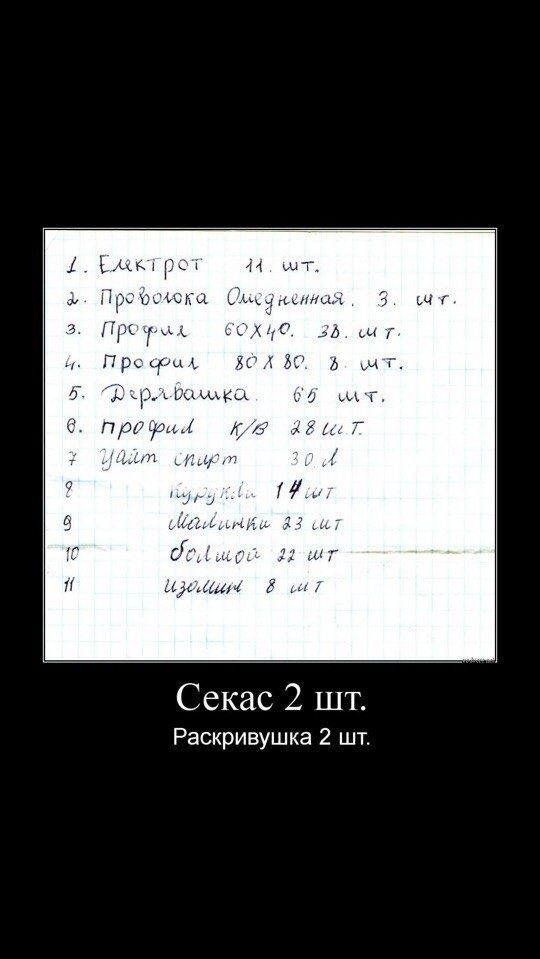 1. Електрот 11. шт.
2. Проволока Омедненная. 3. шт.
3. Профил 60X40. 38. шт.
4. Профил 80X80. 8. шт.
5. Дерявашка. 65 шт.
6. профил к/в 28 шт.
7 Уайт спирт 30 л
8 курукли 14 шт
9 малинки 23 шт
10 болшой 22 шт
11 изомин 8 шт
Секас 2 шт.
Раскривушка 2 шт.